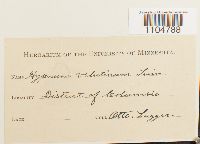 1104788
HERBARIUM OF THE UNIVERSITY OF MINNESOTA.
Hypnum velutinum Linn
LOCALITY District of Columbia
DATE Otto Lugger